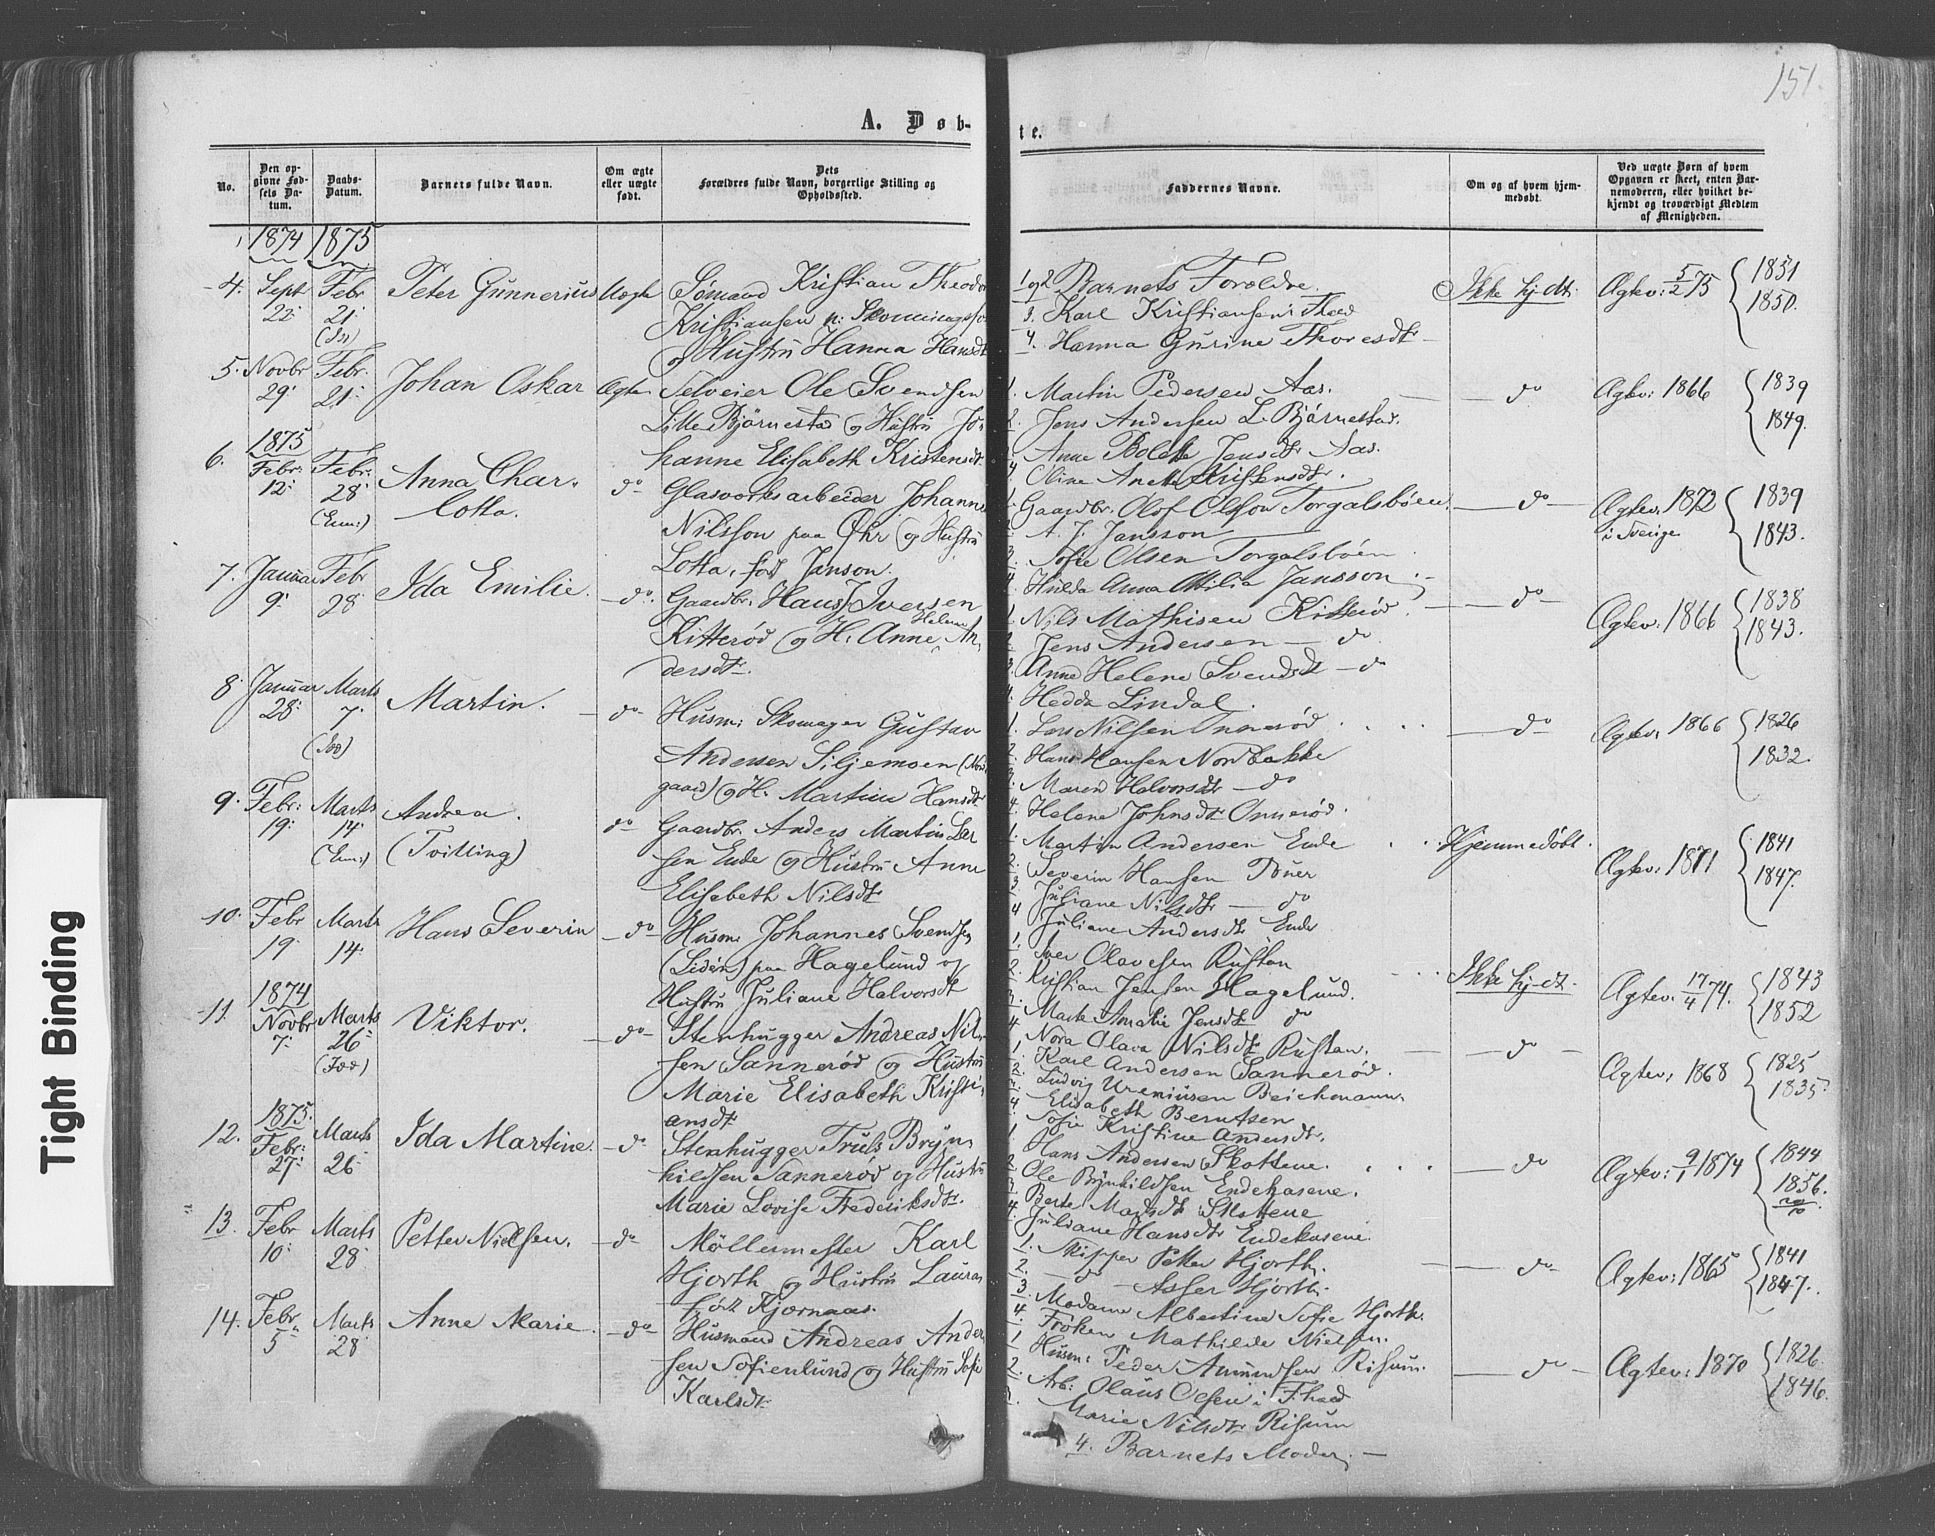 151.
A. Døb-
te.
No.
Den op-
givne Fød-
sels Da-
tum.
Daabs-
Datum.
Barnets fulde Navn.
Om ægte
eller uægte
født.
Dets
Forældres fulde Navn, borgerlige Stilling og
Opholdssted.
Faddernes Navne.
Om og af hvem hjem-
medøbt.
Ved uægte Børn af hvem
Opgaven er skeet, enten Bar-
nemoderen, eller hvilket be-
kjendt og troværdigt Medlem
af Menigheden.
1874 1875
4. Sept 22 Febr 21 Peter Gunnerius Uægte Sømand Kristian Theodor
Kristiansen
og Hustru Hanna Hansdt
1 og 2 Barnets Forældre.
3. Karl Kristiansen Thed
4. Hanna Gurine Thoresdt
Ikke hj. dt. Ægtev: 5/2 75 1851 1850.
5. Novbr 29 Febr. 21 Johan Oskar Ægte Selveier Ole Svendsen
Lille Bjørnestad og Hustru Jo-
hanne Elisabeth Kristensdt
1. Martin Pedersen Aas.
2. Jens Andersen L. Bjørnestad.
Anne Bolette Jensdt Aas.
4 Oline Kristensdt.
do Ægtev: 1866 1839 1849.
1875
6. Febr: 12 Febr: 28 Anna Char-
lotta. do Glasværksarbeider Johannes
Nilsson paa Øhr og Hustru
Lotta, fød Janson.
Gaardbr. Olof Olsson Torgalsbøen.
A. J. Jansson
Sofie Olsen Torgalsbøen
Hulda Anna Janssson
do Ægtev. 1872 i Sverige 1839 1843.
7. Januar 9 Febr 28 Ida Emilie. do. Gaardbr. Hans J. Iversen
Kitterød og H. Anne Helene An-
dersdt.
1. Nils Mathisen Kitterød.
2 Jens Andersen do
3. Anne Helene Svendsdt do
4. Hedda Lindal.
do Ægtev: 1866 1838 1843.
8. Januar 28 Marts 7. Martin. do Husm: Skomager Gustav
Andersen Siljemoen
og H. Martine Hansdt
1. Lars Nilsen Onnerød
2. Hans Hansen Nordbakke
3. Maren Halvorsdt do
4. Helene Johnsdt Onnerød.
do Ægtev: 1866 1826 1832.
9. Febr: 19 Marts 14 Andrea.
(Tvilling) do Gaardbr. Anders Martin Lar-
sen Ende og Hustru Anne
Elisabeth Nilsdt
1. Martin Andersen Ende
2. Severin Hansen
3. Juliane Nilsdt do
4 Juliane Andersdt Ende
Hjemmedøbt. Ægtev: 1871 1841 1847.
10. Febr 19 Marts 14. Hans Severin do Husm: Johannes Svendsen
paa Hagelund og
Hustru Juliane Halvorsdt
1. Iver Olavesen Rustan
2. Kristian Jensen Hagelund.
3. Marte Amalie Jensdt do
4 Nora Olava Nilsdt Rustan.
Ikke hj. dt. Ægtev. 17/4 74. 1843 1852
1874
11. Novbr 7. Marts 26 Viktor. do Stenhugger Andreas Nil-
sen Sannerød og Hustru
Marie Elisabeth Kristi-
ansdt
1. Karl Andersen Sannerød.
2. Ludvig Beichmann
3. Elisabeth Berntsen
4. Sofie Kristine Andersdt.
do Ægtev: 1868 1825 1835
1875.
12. Febr: 27 Marts 26 Ida Martine. do Stenhugger Truls Bryn-
hildsen Sannerød og Hustru
Marie Lovise Frederiksdt.
1 Hans Andersen Skottene.
2 Ole Brynhildsen Endekasene.
3 Berte Marie Skottene
4. Juliane Hansdt Endekasene.
do Ægtev: 9/1 1874 1844 1856.
13. Febr 10 Marts 28 Petter Nielsen. do Møllemester Karl
Hjorth og Hustru Laura
født Kjærnaas.
1. Skipper Petter Hjorth.
2. do Asser Hjorth.
3 Madame Albertine Sofie Hjorth.
4. Frøken Mathilde Nielsen.
do Ægtev: 1865 1841 1847.
14. Febr. 5 Marts 28 Anne Marie. do Husmand Andreas Ander-
sen Sofienlund og Hustru Sofie
Karlsdt.
1 Husm: Peder Amundsen Risum.
2. Arb: Olaus Olsen i Fr.hald
Marie Nilsdt Risum
4. Barnets Moder.
do Ægtev: 1870 1826 1846.
Tight Binding